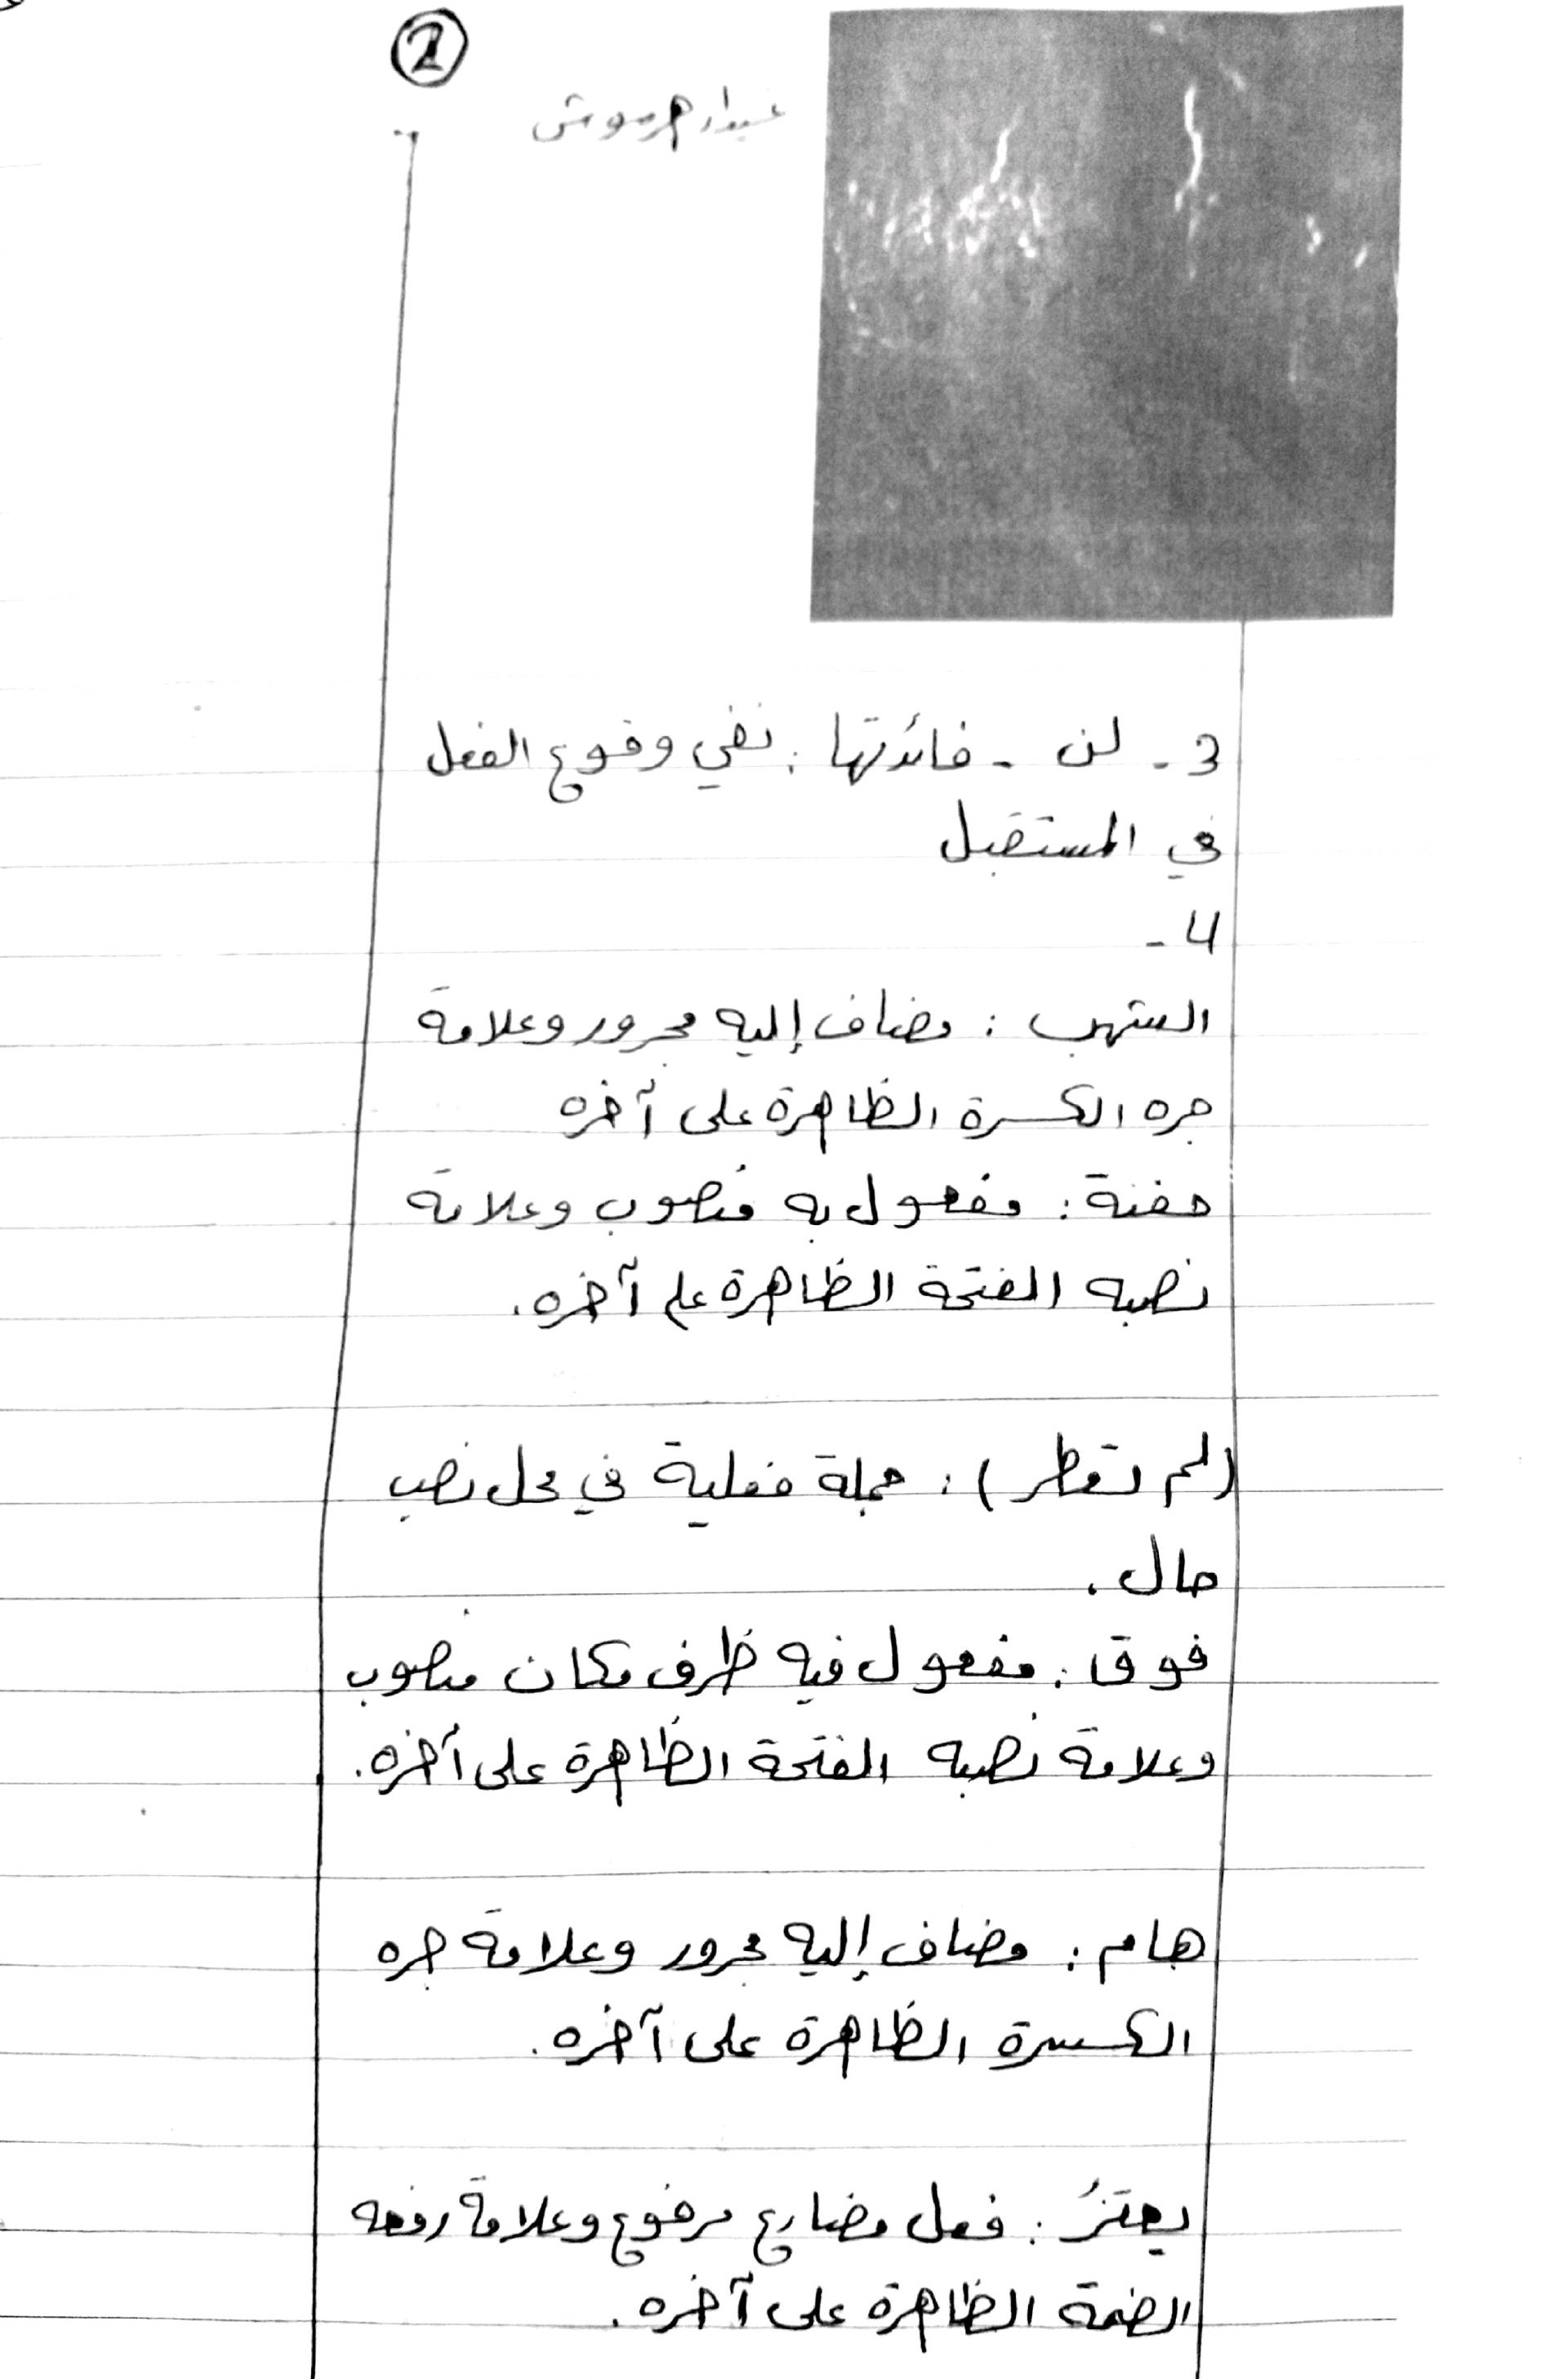 2
3 - لن - فائدتها : نفي وقوع الفعل
في المستقبل
4 -
الشهب : مضاف إليه مجرور وعلامة
جره الكسرة الظاهرة على آخره
حفنة : مفعول به منصوب وعلامة
نصبه الفتحة الظاهرة على آخره .
(لم تمطر) : جملة فعلية في محل نصب
حال .
فوق : مفعول فيه ظرف مكان منصوب
وعلامة نصبه الفتحة الظاهرة على آخره .
هام : مضاف إليه مجرور وعلامة جره
الكسرة الظاهرة على آخره .
يعتزُ : فعل مضارع مرفوع وعلامة رفعه
الضمة الظاهرة على آخره .